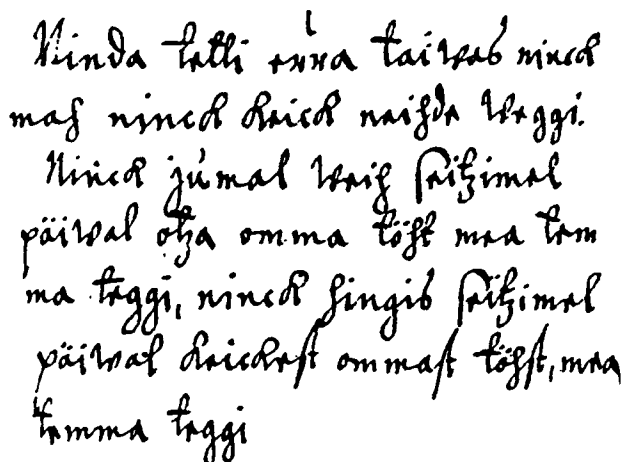 Ninda tetti erra taiwas ninck
mah ninck keick neihde weggi.
Ninck jumal weih seitzimel
päiwal otza omma töht mea tem
ma teggi, ninck hingis seitzimel
päiwal keickest ommast töhst, mea
temma teggi